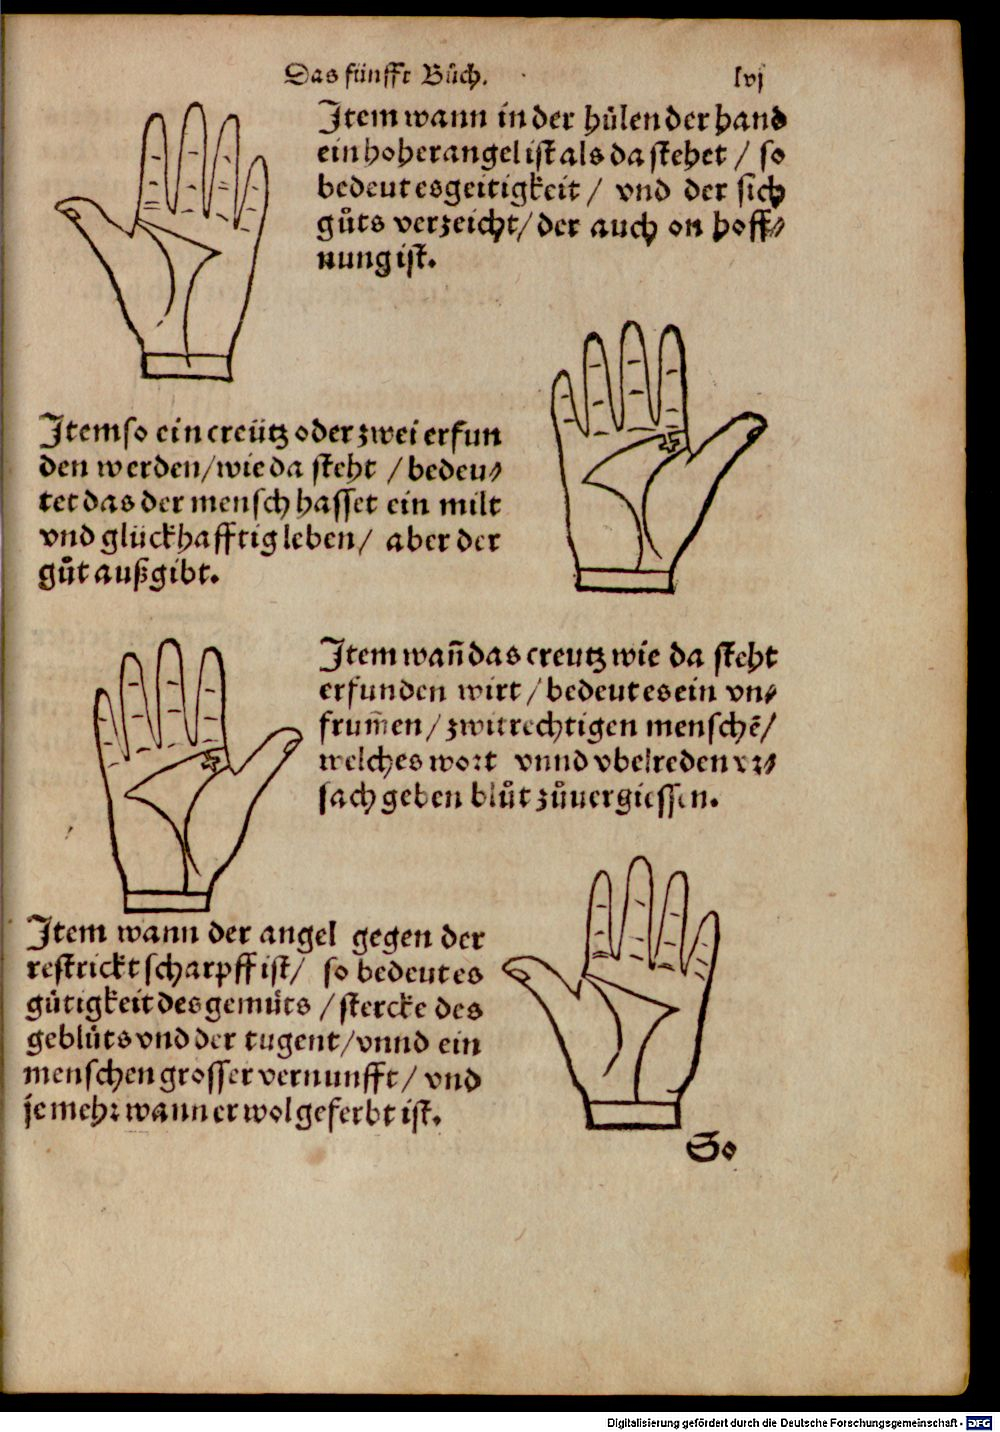 Das fünfft Bůch.
lvj
Item wann in der hülen der hand
ein hoher angel ist als da stehet / so
bedeut es geitigkeit / vnd der sich
gůts verzeicht / der auch on hoff⸗
nung ist.
Item so ein creütz oder zwei erfun
den werden / wie da steht / bedeu⸗
tet das der mensch hasset ein milt
vnd glückhafftig leben / aber der
gůt außgibt.
Item wañ das creutz wie da steht
erfunden wirt / bedeut es ein vn⸗
frum̃en / zwitrechtigen menschẽ /
welches wort vnnd vbelreden vr⸗
sach geben blůt zůuergiessen.
Item wann der angel gegen der
restrickt scharpff ist / so bedeut es
gütigkeit des gemüts / stercke des
geblůts vnd der tugent / vnnd ein
menschen grosser vernunfft / vnd
je mehr wann er wol geferbt ist.
So
Digitalisierung gefördert durch die Deutsche Forschungsgemeinschaft - DFG